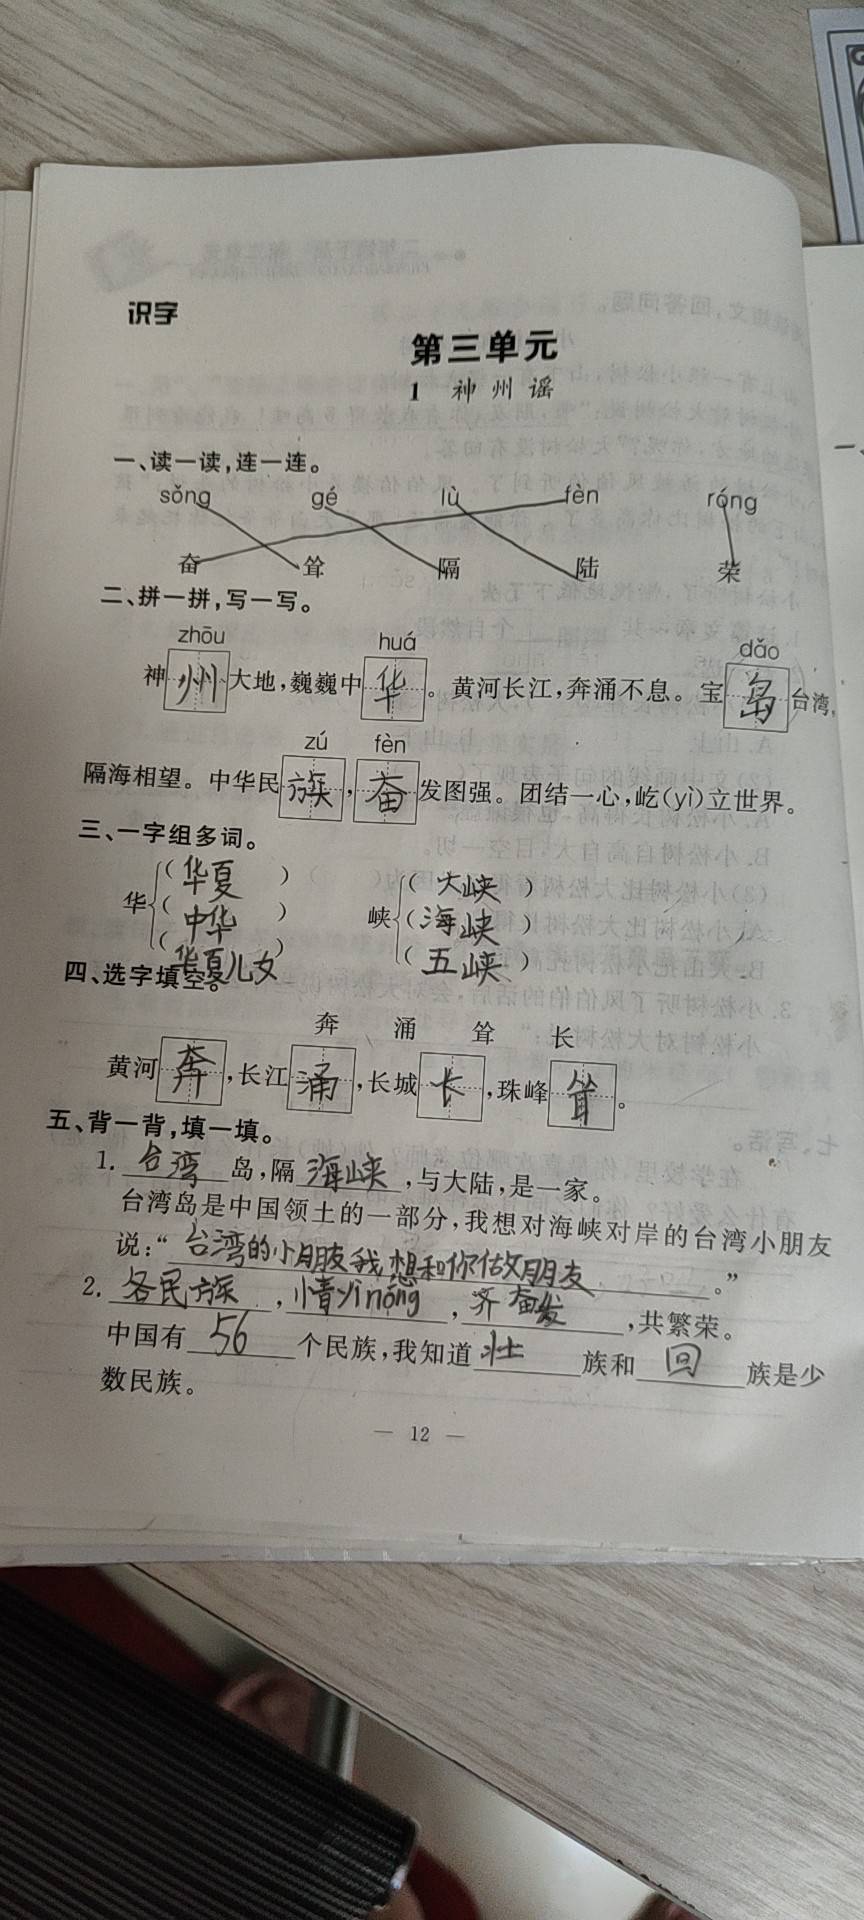 识字
第三单元
1 神州谣
一、读一读,连一连。
sǒng gé lù fèn róng
奋 耸 隔 陆 荣
二、拼一拼,写一写。
zhōu huá dǎo
神州大地,巍巍中华。黄河长江,奔涌不息。宝岛台湾,
zú fèn
隔海相望。中华民族,奋发图强。团结一心,屹(yì)立世界。
三、一字组多词。
华(华夏) 峡(大峡)
(中华) (海峡)
(华夏儿女) (五峡)
四、选字填空。
奔 涌 耸 长
黄河奔,长江涌,长城长,珠峰耸。
五、背一背,填一填。
1. 台湾岛,隔海峡,与大陆,是一家。
台湾岛是中国领土的一部分,我想对海峡对岸的台湾小朋友
说:“台湾的小朋友我想和你做朋友。”
2. 各民族,情yì nóng,齐奋发,共繁荣。
中国有56个民族,我知道壮族和回族是少
数民族。
— 12 —